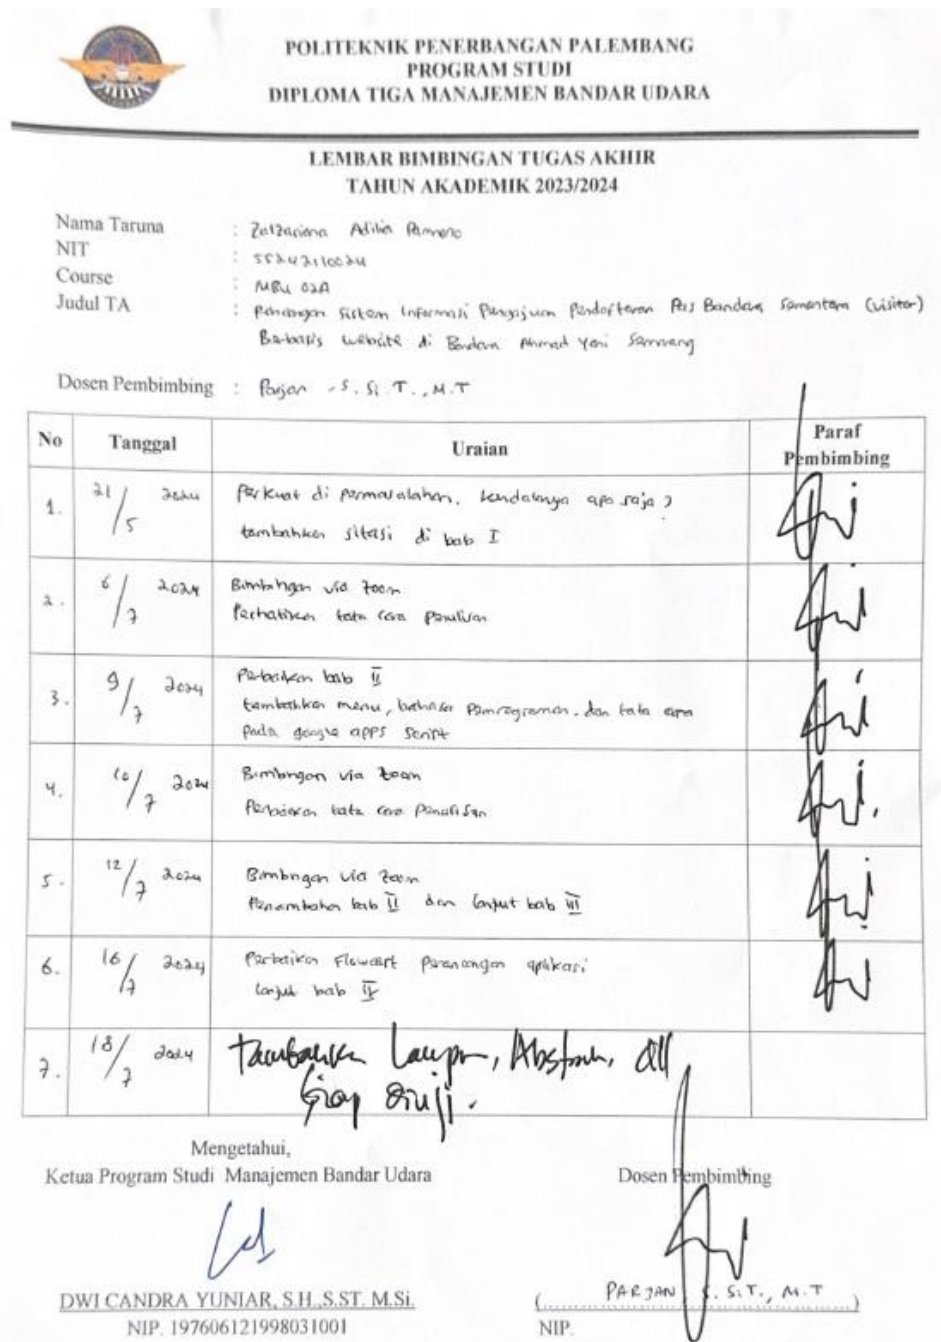 POLITEKNIK PENERBANGAN PALEMBANG
PROGRAM STUDI
DIPLOMA TIGA MANAJEMEN BANDAR UDARA
LEMBAR BIMBINGAN TUGAS AKHIR
TAHUN AKADEMIK 2023/2024
Nama Taruna :
NIT : 55242110024
Course : MBU 02A
Judul TA : Sistem Informasi Pengajuan Pendaftaran Pas Bandara Sementara (visitor)
Berbasis Website di Bandara Ahmad Yani Semarang
Dosen Pembimbing : Parjan . S. Si. T., M.T
No Tanggal Uraian Paraf Pembimbing
1. 21/5 2024 Perkuat di permasalahan, kendalanya apa saja ?
tambahkan sitasi di bab I
2. 6/7 2024 Bimbingan via zoom
Perhatikan tata cara penulisan
3. 9/7 2024 Perbaikan bab II
tambahkan menu, bahasa pemrograman, dan tata cara
pada google apps script
4. 10/7 2024 Bimbingan via zoom
Perbaikan tata cara penulisan
5. 12/7 2024 Bimbingan via zoom
Penambahan bab II dan lanjut bab III
6. 16/7 2024 Perbaikan Flowcart perancangan aplikasi
lanjut bab IV
7. 18/7 2024 Tambahkan Lampn, Abstrak, dll
Siap diuji.
Mengetahui,
Ketua Program Studi Manajemen Bandar Udara
Dosen Pembimbing
DWI CANDRA YUNIAR, S.H.,S.ST. M.Si.
NIP. 197606121998031001
(PARJAN S. Si.T., M.T)
NIP.